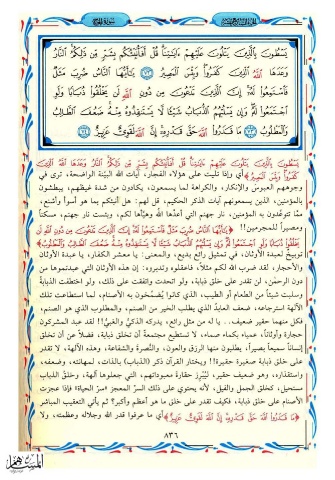 الجزء السابع عشر سورة الحج
يَسْطُونَ بِالَّذِينَ يَتْلُونَ عَلَيْهِمْ ءَايَٰتِنَا قُلْ أَفَأُنَبِّئُكُم بِشَرٍّ مِّن ذَٰلِكُمُ النَّارُ
وَعَدَهَا اللَّهُ الَّذِينَ كَفَرُوا وَبِئْسَ الْمَصِيرُ ﴿٧٢﴾ يَٰأَيُّهَا النَّاسُ ضُرِبَ مَثَلٌ
فَاسْتَمِعُوا لَهُ إِنَّ الَّذِينَ تَدْعُونَ مِن دُونِ اللَّهِ لَن يَخْلُقُوا ذُبَابًا وَلَوِ
اجْتَمَعُوا لَهُ وَإِن يَسْلُبْهُمُ الذُّبَابُ شَيْئًا لَّا يَسْتَنقِذُوهُ مِنْهُ ضَعُفَ الطَّالِبُ
وَالْمَطْلُوبُ ﴿٧٣﴾ مَا قَدَرُوا اللَّهَ حَقَّ قَدْرِهِ إِنَّ اللَّهَ لَقَوِيٌّ عَزِيزٌ ﴿٧٤﴾
يَسْطُونَ بِالَّذِينَ يَتْلُونَ عَلَيْهِمْ ءَايَٰتِنَا قُلْ أَفَأُنَبِّئُكُم بِشَرٍّ مِّن ذَٰلِكُمُ النَّارُ وَعَدَهَا اللَّهُ الَّذِينَ
كَفَرُوا وَبِئْسَ الْمَصِيرُ﴾ أي وإذا تليت على هؤلاء الفجار، آيات الله البيّنة الواضحة، ترى في
وجوههم العبوسَ والإنكار، والكراهة لما يسمعون، يكادون من شدة غيظهم، يبطشون
بالمؤمنين، الذين يسمعونهم آيات الذكر الحكيم، قل لهم: هل أنبئكم بما هو أسوأ وأشنع،
ممّا تتوعّدون به المؤمنين، نار جهنم التي أعدّها الله وهيّأها لكم، وبئست نار جهنم، سكناً
ومصيراً للمجرمين!! ﴿يَٰأَيُّهَا النَّاسُ ضُرِبَ مَثَلٌ فَاسْتَمِعُوا لَهُ إِنَّ الَّذِينَ تَدْعُونَ مِن دُونِ اللَّهِ لَن
يَخْلُقُوا ذُبَابًا وَلَوِ اجْتَمَعُوا لَهُ وَإِن يَسْلُبْهُمُ الذُّبَابُ شَيْئًا لَّا يَسْتَنقِذُوهُ مِنْهُ ضَعُفَ الطَّالِبُ وَالْمَطْلُوبُ﴾
توبيخ لعبدة الأوثان، في تمثيل رائع بديع، والمعنى: يا معشر الكفار، يا عبدة الأوثان
والأحجار، لقد ضرب الله لكم مثلاً، فاعقلوه وتدبروه: إن هذه الأوثان التي عبدتموها من
دون الرحمٰن، لن تقدر على خلق ذبابة، ولو اتحدت واتفقت على ذلك، ولو اختطفت الذبابةُ
وسلبت شيئاً من الطعام أو الطيب، الذي كانوا يُضمّخون به الأصنام، لما استطاعت تلك
الآلهة استرجاعه، ضعف العابدُ الذي يطلب الخير من الصنم، والمطلوب الذي هو الصنم،
فكل منهما حقير ضعيف.. يا له من مثل رائع، يدركه الذكيُّ والغبيُّ!! لقد عبد المشركون
حجارة وأوثاناً، عمياء بكماء صماء، لا تستطيع مجتمعةً أن تخلق ذبابة، فضلاً عن أن تخلق
إنساناً سميعاً بصيراً، يطلبون منها الرزق والعون، والنصرة والشفاعة، وهذه الآلهة، لا تقدر
على خلق ذبابة صغيرة حقيرة!! ويختار القرآن ذكر (الذباب) بالذات، لمهانته، وضعفه،
واستقذاره، وهو ضعيف حقير، ليُبْرِز حقارة معبوداتهم، التي جعلوها آلهة، وخلقُ الذباب
مستحيل، كخلق الجمل والفيل، لأنه يحتوي على ذلك السرّ المعجز «سرّ الحياة» فإذا عجزت
الأصنام على خلق ذبابة، فكيف تقدر على خلق ما هو أعظم وأكبر؟ ثم يأتي التعقيب المباشر
﴿مَا قَدَرُوا اللَّهَ حَقَّ قَدْرِهِ إِنَّ اللَّهَ لَقَوِيٌّ عَزِيزٌ﴾ أي ما عرفوا قدر الله وجلاله وعظمته، ولا
٨٣٦